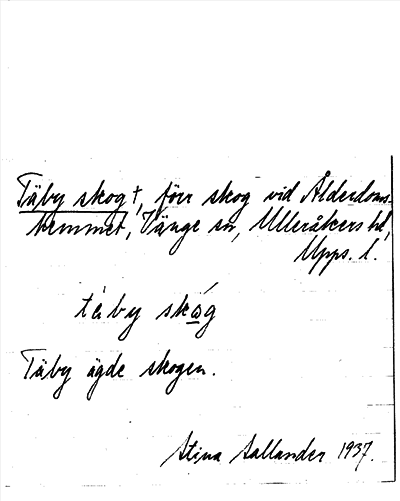 Täby skog†, förr skog vid Ålderdoms-
hemmet, Vänge sn, Ulleråkers hd,
Upps. l.
tä́by skó̲g
Täby ägde skogen.
Stina Sallander 1937.